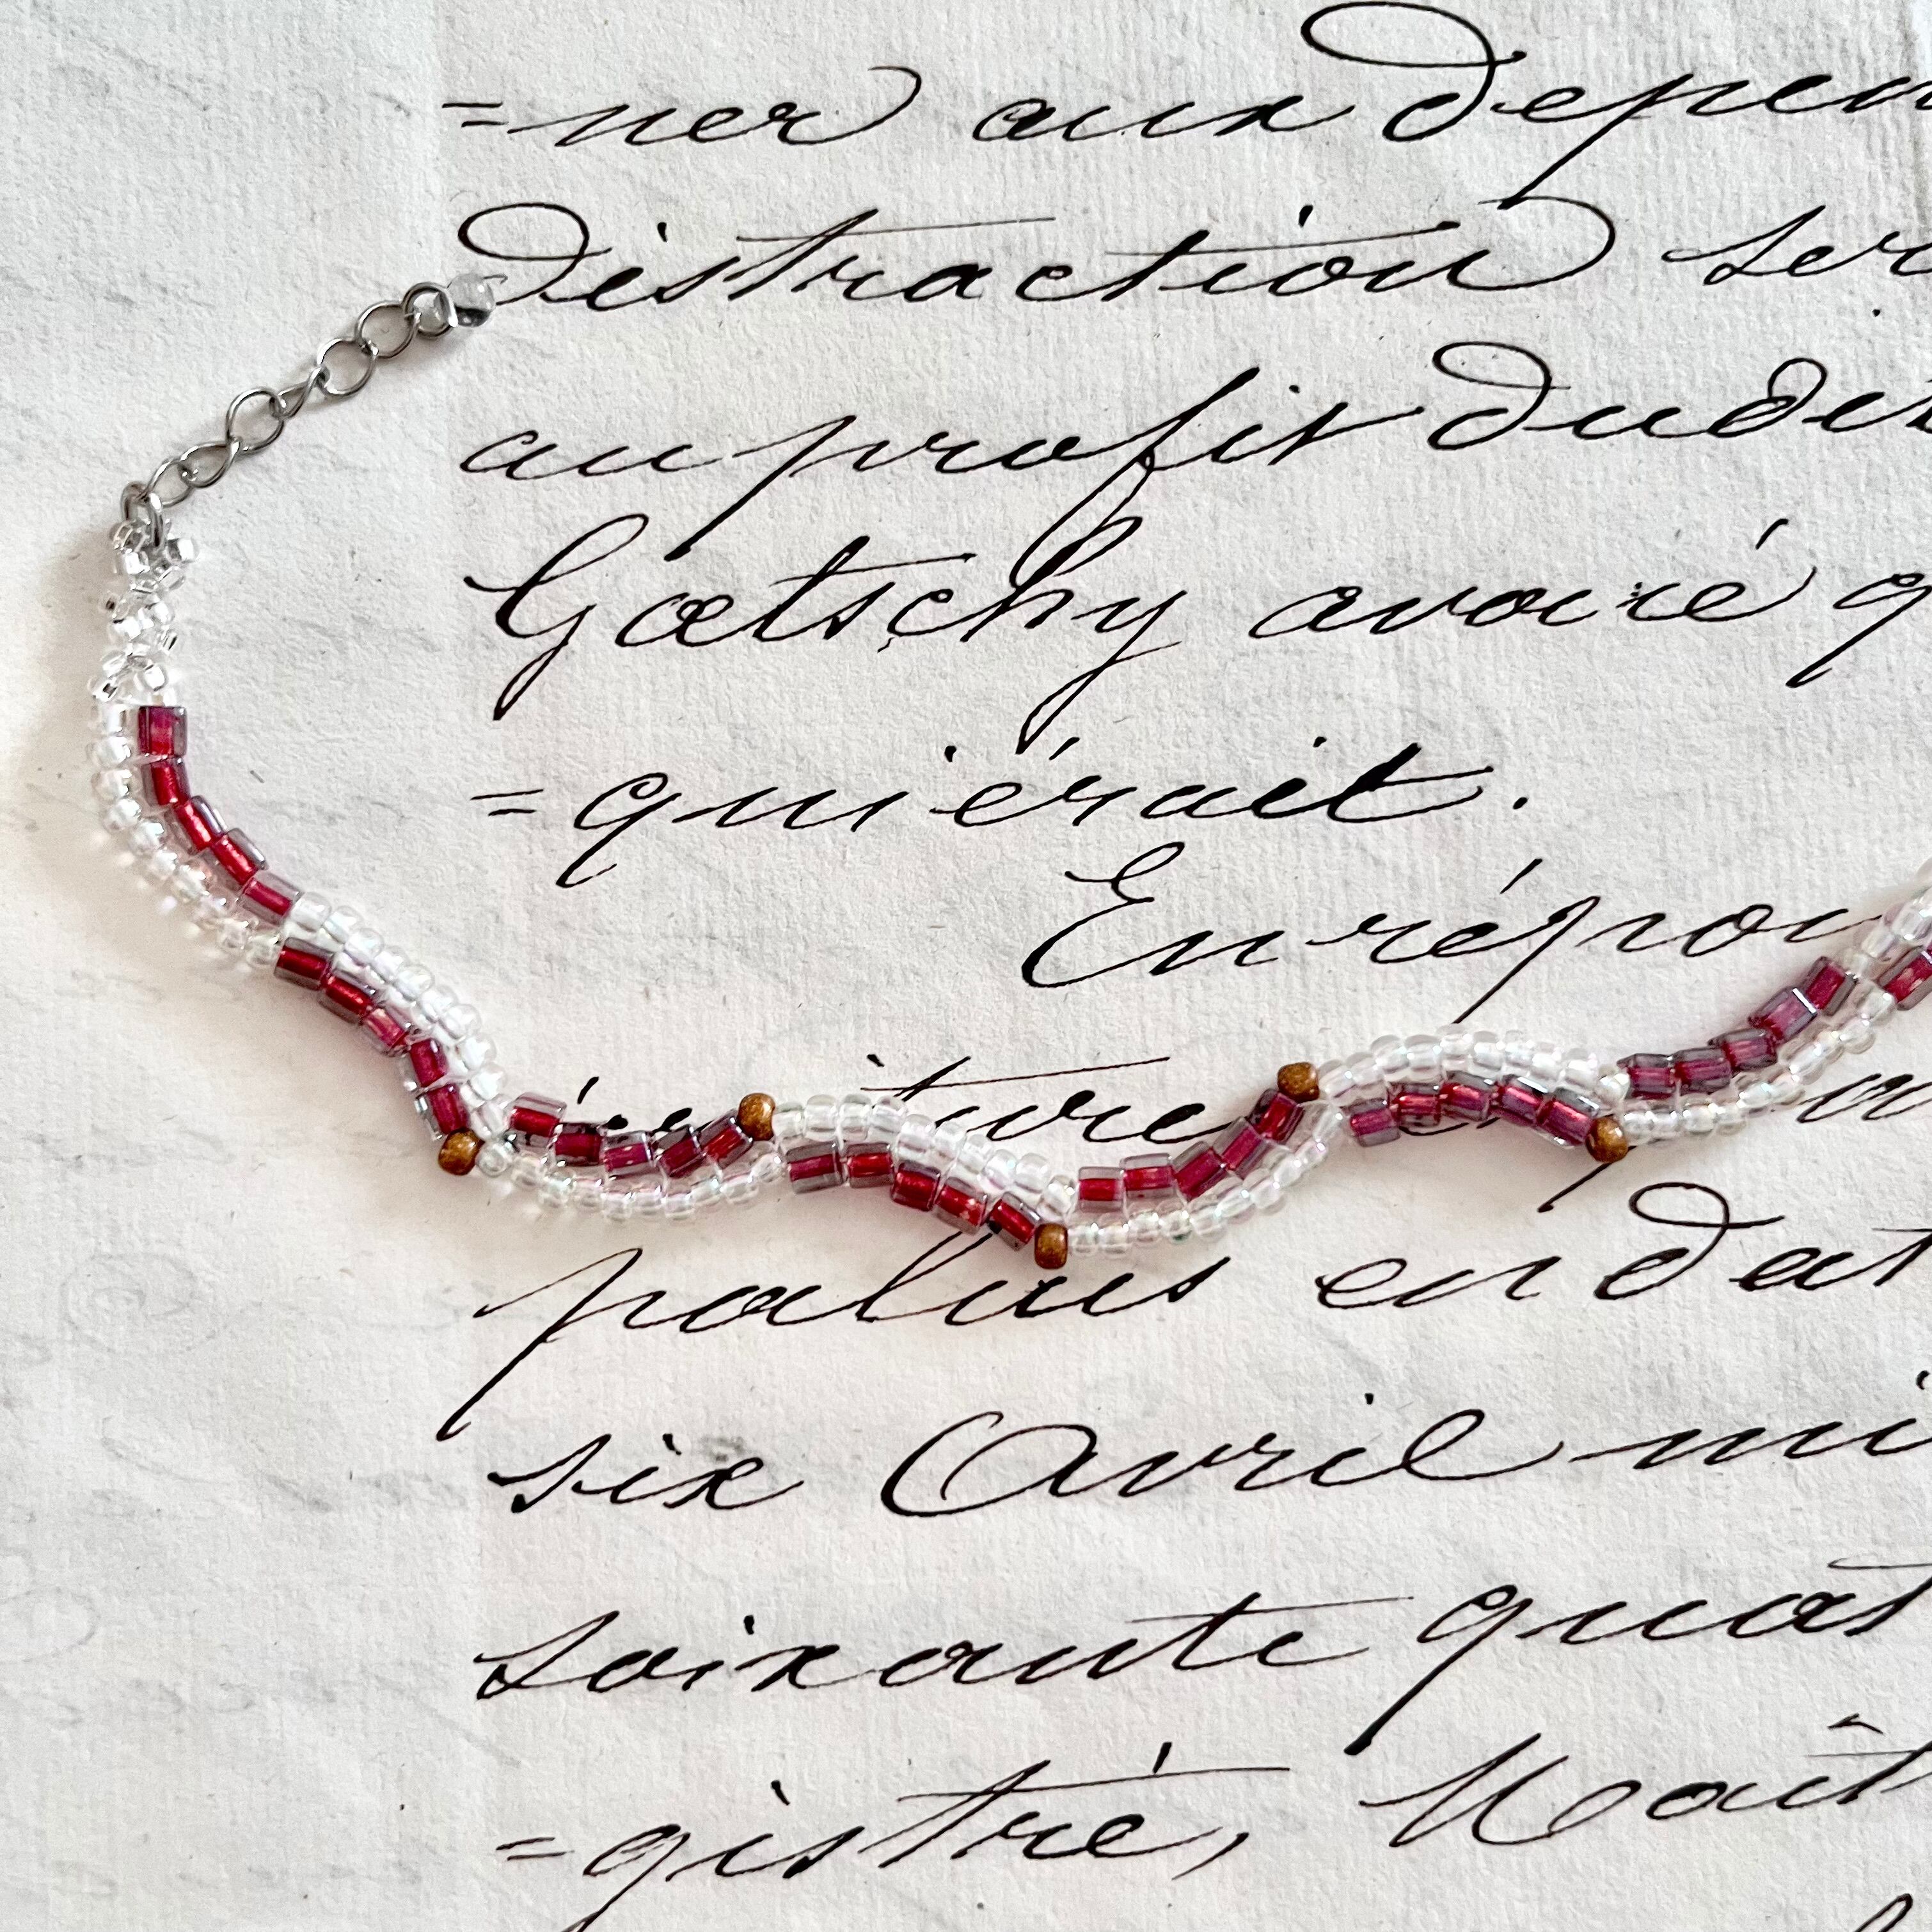 =ner aux dépen
distraction ser
au profit dudit
Gœtschy avoué q
=quiérait.
En répon
palais en dat
six Avril mi
soixante quat
=gistré, Maît